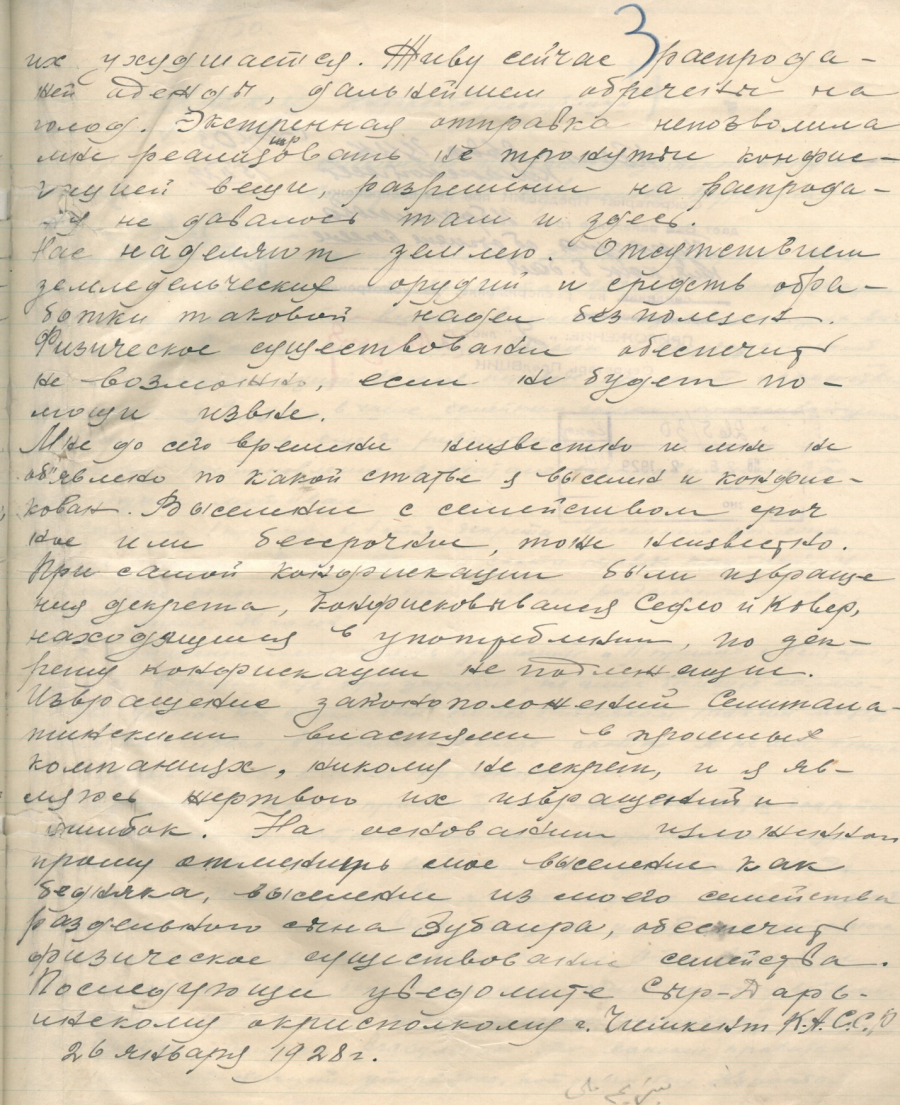 3
их ухудшается. Живу сейчас распрода-
жей одежды, дальнейшем обречены на
голод. Экстренная отправка непозволила
мне реализировать не тронутые конфис-
кацией вещи, разрешении на распрода-
жу не давалось там и здесь.
Нас наделяют землею. Отсутствием
земледельческих орудий и средств обра-
ботки таковой надел безполезен.
Физическое существовании обеспечить
не возможно, если не будет по-
мощи извне.
Мне до сего времени неизвестно и мне не
об'явлено по какой статье я выселен и конфис-
кован. Выселении с семейством сроч
ное или бессрочное, тоже неизвестно.
При самой конфискации были извраще
ния декрета, конфисковывался Седло и Ковер,
находящиеся в употреблении, по дек-
рету конфискации не подлежащии.
Извращение законоположений Семипала-
тинскими властями в прошлых
компаниях, никому не секрет, и я яв-
ляюсь жертвою их извращений и
ошибок. На основании изложенного
прошу отменить мое выселение как
бедняка, выселении из моего семейства
раздельного сына Зубаира, обеспечить
физическое существовании семейства.
Последующи уведомите Сыр-Дарь-
инскому окрисполкому г. Чимкент К.А.С.С.Р
26 января 1928 г.